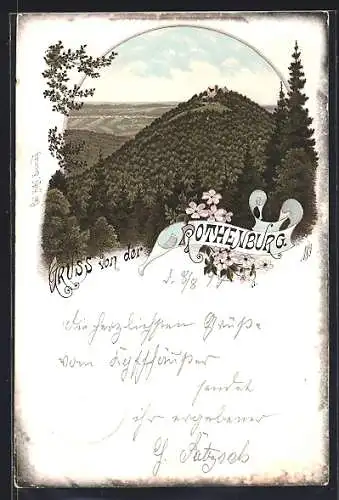 GRUSS von der
ROTHENBURG.
Die herzlichsten Grüße
vom Kyffhäußer
sendet
ihr ergebener
G. Patzsch